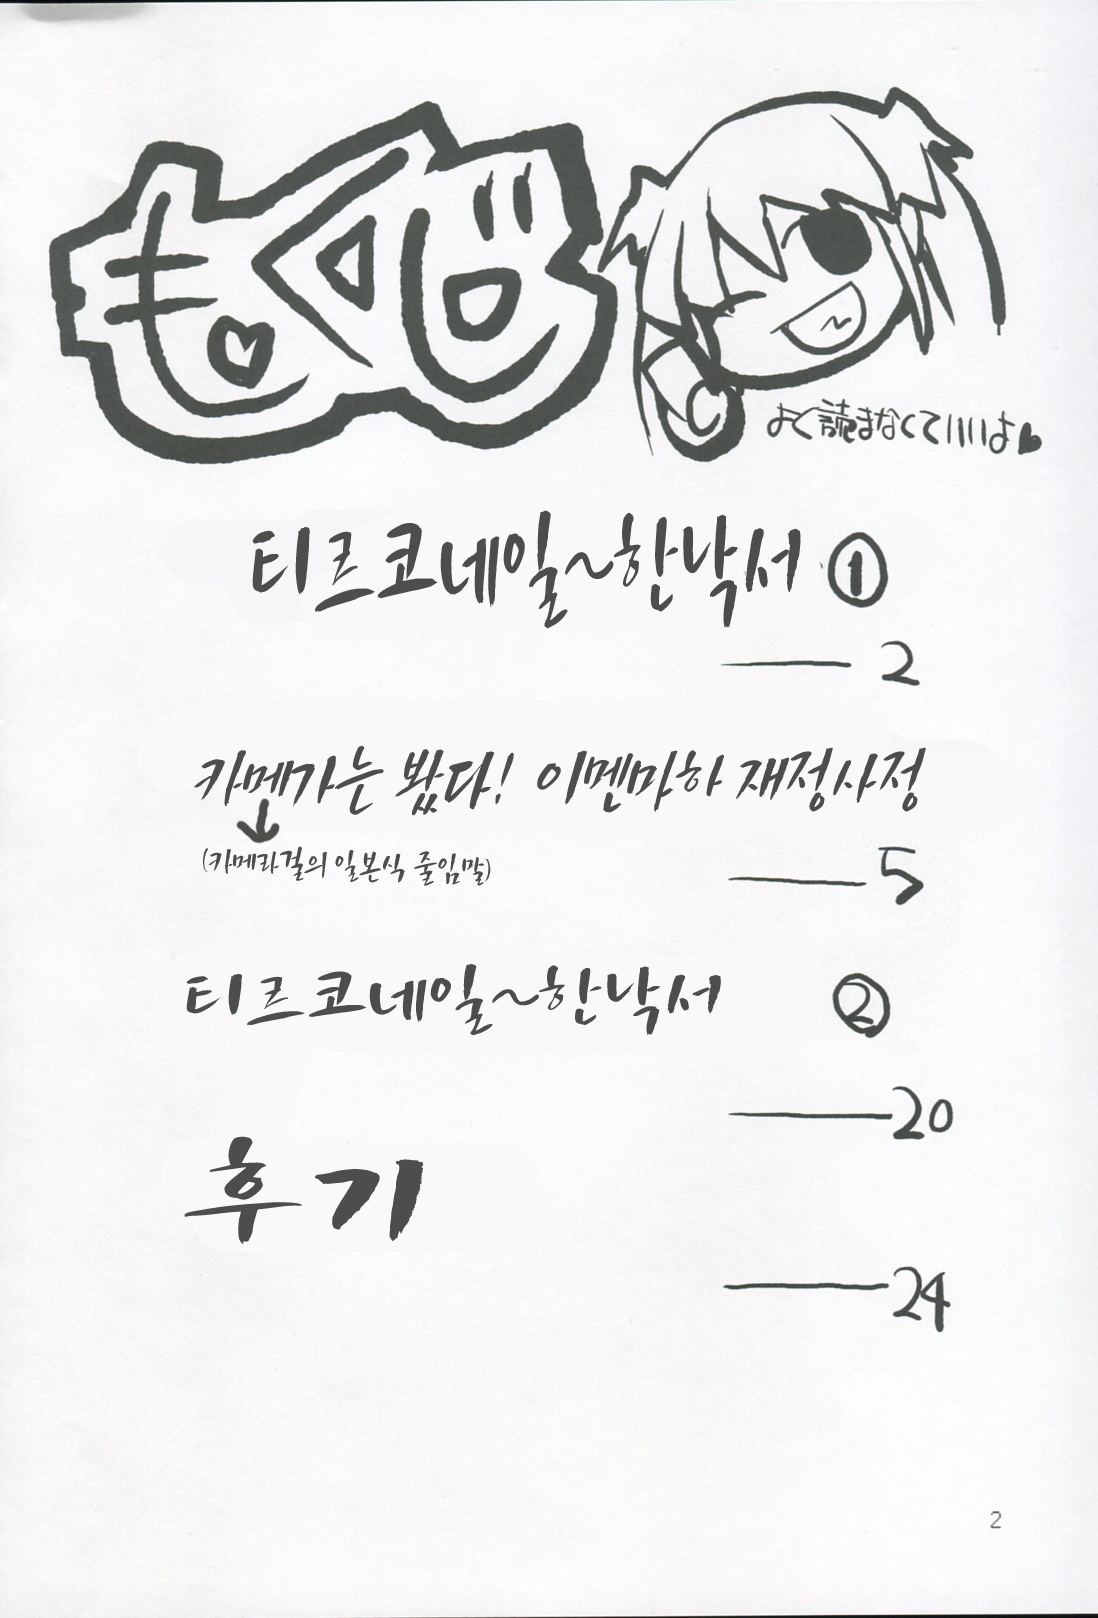 もくじ
よく読まなくていいよ♥
티르코네일~한낙서 ①
2
카메가는 봤다! 이멘마하 재정사정
(카메라걸의 일본식 줄임말)
5
티르코네일~한낙서 ②
20
후기
24
2